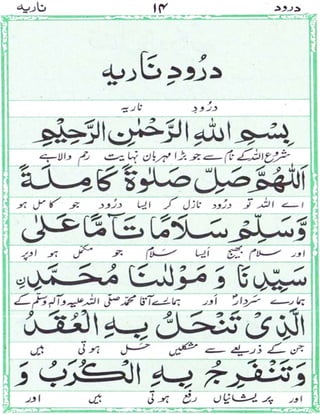 درود ۱۴ ناریه
درُودِ نَاریه
درُودِ ناریه
بِسْمِ اللهِ الرَّحْمٰنِ الرَّحِيْمِ
شروع اللہ کے نام سے جو بڑا مہربان نہایت رحم والا ہے
اَللّٰهُمَّ صَلِّ صَلٰوةً كَامِلَةً
اے اللہ تو درُود نازل کر ایسا درُود جو کامل ہو
وَّسَلِّمْ سَلَامًا تَآمًّا عَلٰى
اور سلام بھیج ایسا سلام جو مکمل ہو اوپر
سَيِّدِنَا وَ مَوْلٰىنَا مُحَمَّدِنِ
ہمارے سردار اور ہمارے آقا محمد صلی اللہ علیہ وآلہ وسلم کے
الَّذِىْ تَنْحَلُّ بِهِ الْعُقَدُ
جن کے ذریعے سے مشکلیں حل ہوتی ہیں
وَتَنْفَرِجُ بِهِ الْكُرَبُ وَ
اور پریشانیاں رفع ہوتی ہیں اور